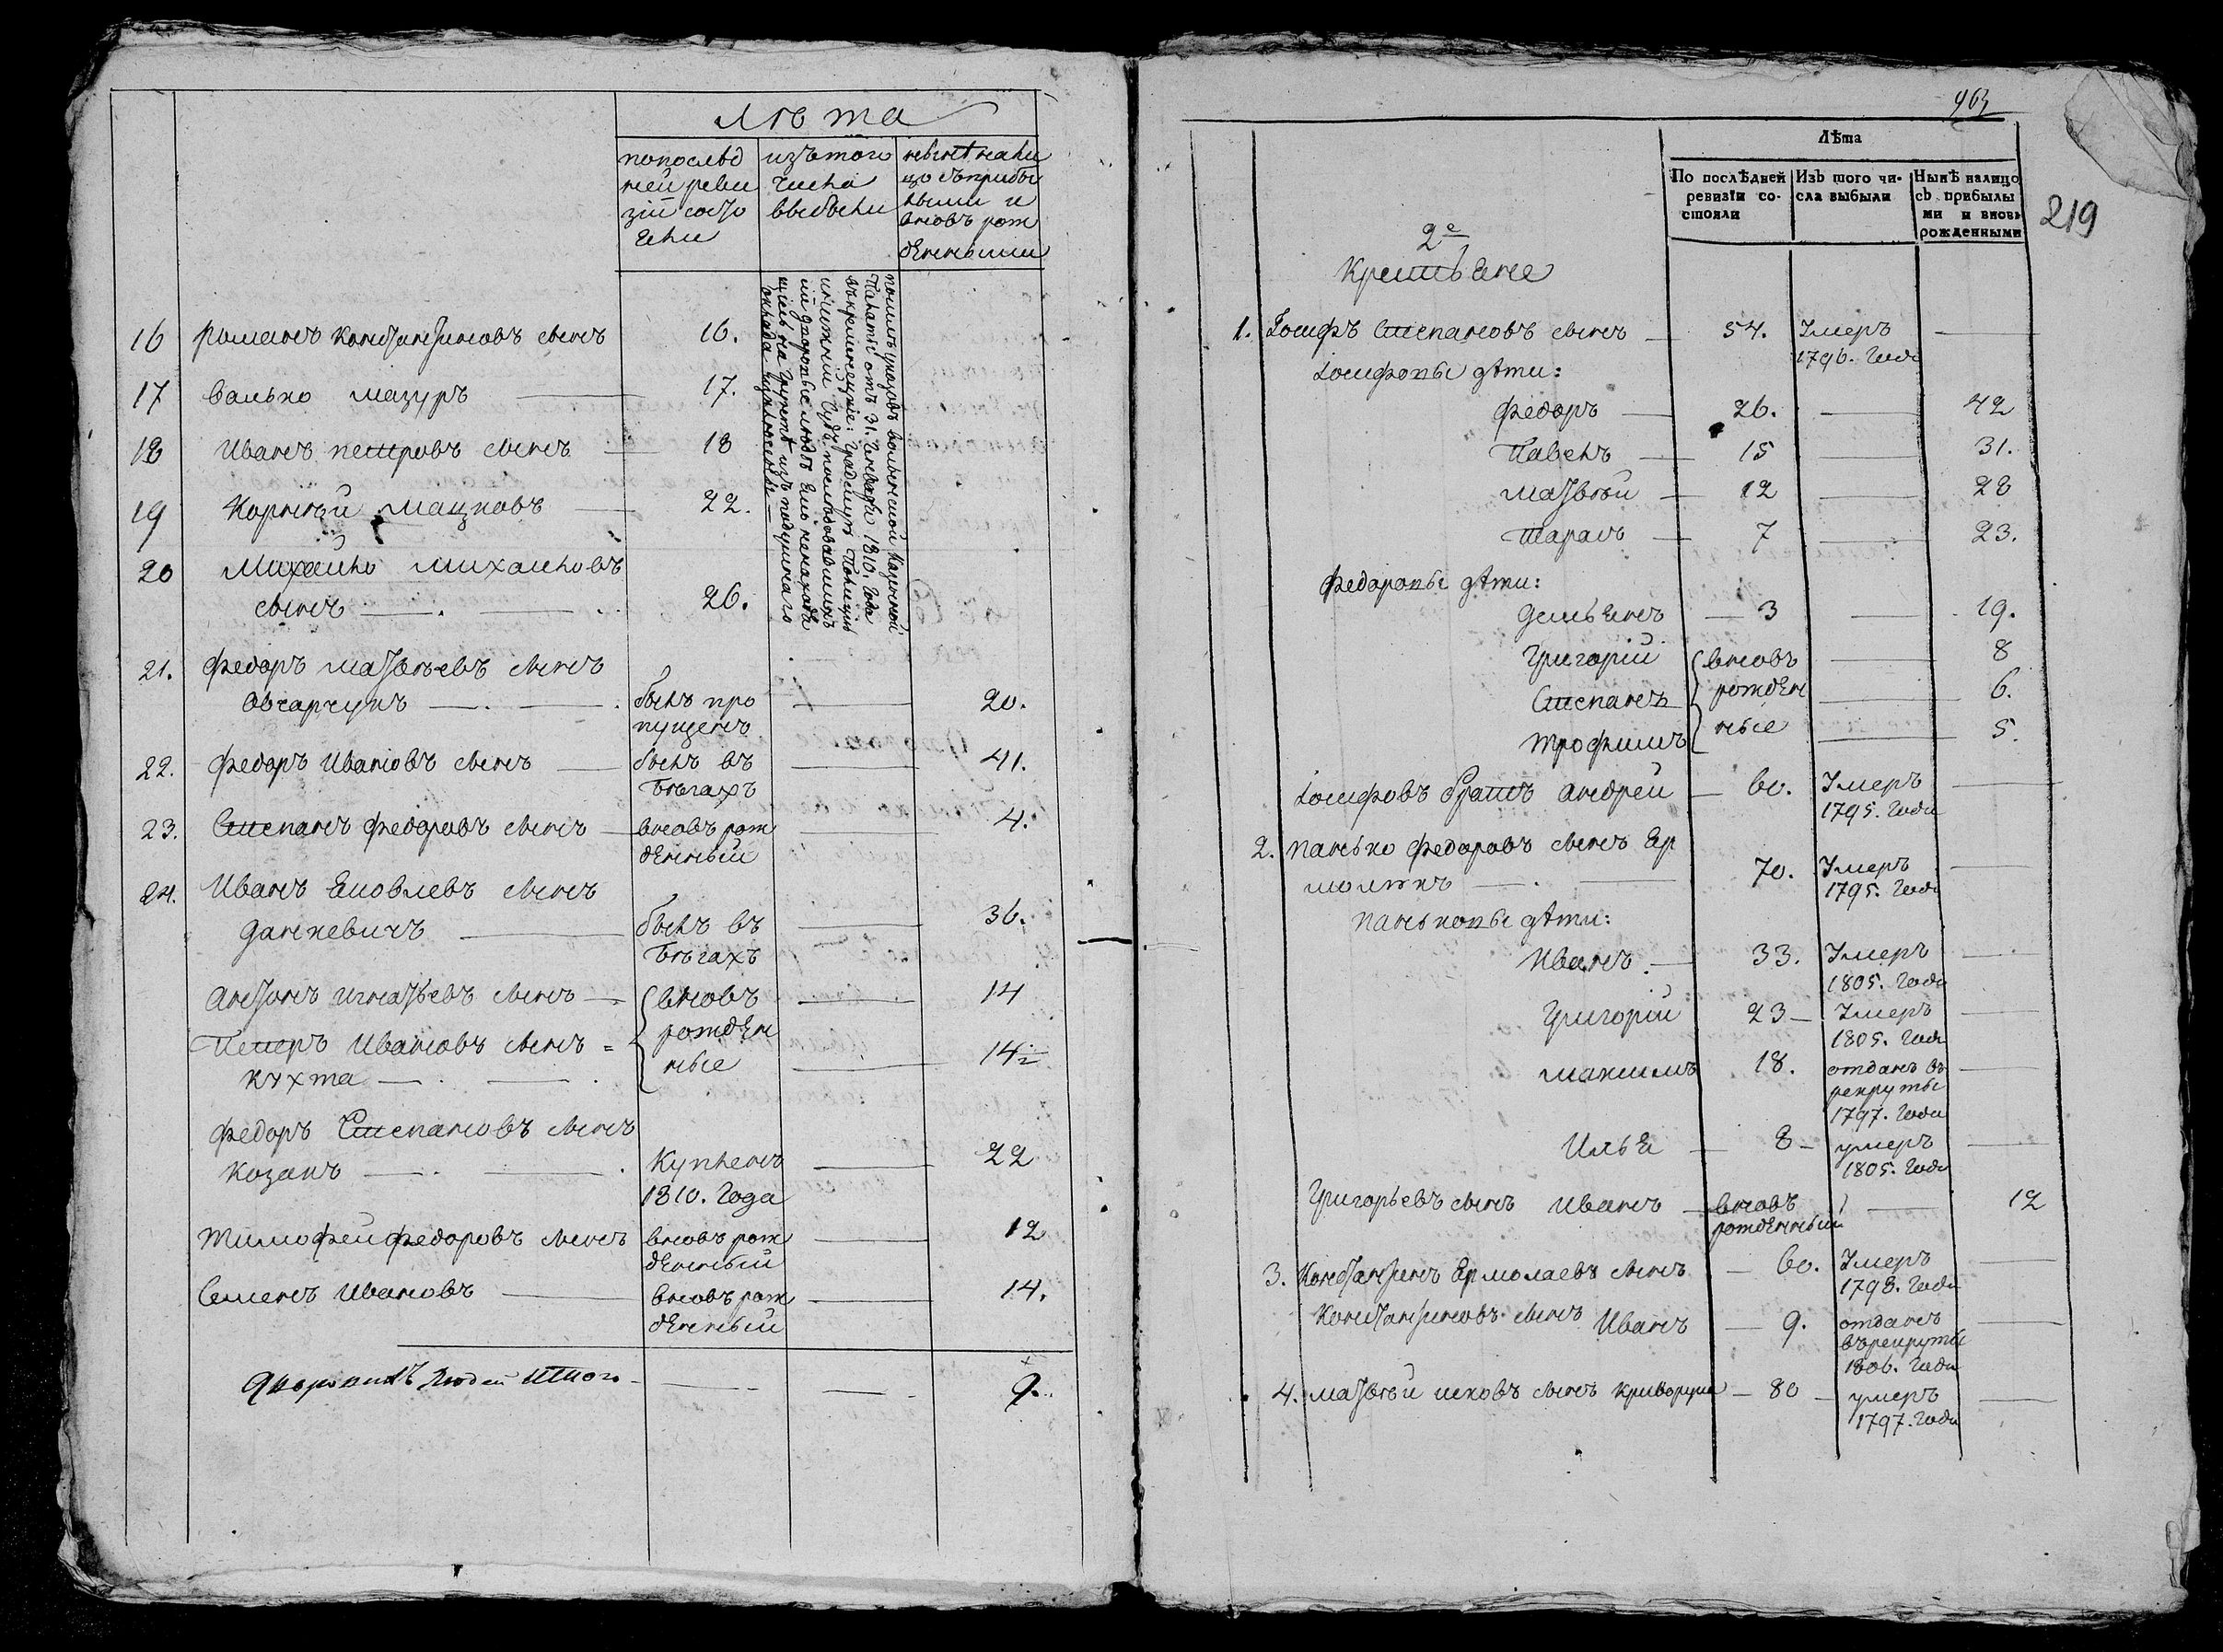 Лѣта
попослѣд
ней реви
зіи состо
яли
изътого
числа
выбыли
нынѣ нали
цо съприбы
лыми и
вновь рож
денными
16 Романъ Констянтиновъ сынъ 16.
17 Васько Мазуръ 17.
18 Иванъ Петровъ сынъ 18
19 Корнѣй Мацковъ 22.
20 Михайло Михайловъ
сынъ 26.
посилѣ указовъ волынской казенной
Палаты отъ 31. Генваря 1810. Года
21. Федоръ Матвѣевъ сынъ
Овчарчукъ былъ про 20.
пущенъ
22. Федоръ Ивановъ сынъ былъ въ 41.
бѣгахъ
23. Степанъ Федоровъ сынъ вновь рож 4.
денный
24. Иванъ Яковлевъ сынъ
Данкевичъ былъ въ 36.
бѣгахъ
Антонъ Игнатьевъ сынъ вновь 14
рожден
Петеръ Ивановъ сынъ = ные 14
Кухта
Федоръ Степановъ сынъ
Козакъ Купленъ 22
1810. Года
Тимофей Федоровъ сынъ вновь рож 12
денный
Семенъ Ивановъ вновь рож 14.
денный
Дворовихъ Людей Итого 9.
963
219
Лѣта
По послѣдней
ревизіи со-
стояли
Изъ того чи-
сла выбыли
Нынѣ налицо
съ прибылы
ми и вновь
рожденными
2е
Крестьяне
1. Іосифъ Степановъ сынъ 54. Умеръ
1796. Года
Іосифовы дѣти:
Федоръ 26. 42
Павелъ 15 31.
Матвѣй 12 28
Тарасъ 7 23.
Федоровы дѣти:
Демьянъ 3 19.
Григорій вновь 8
Степанъ рожден 6.
Трофимъ ные 5.
Іосифовъ братъ Андрей 60. Умеръ
1795. Года
2. Панько Федоровъ сынъ Ер
молюкъ 70. Умеръ
1795. Года
Паньковы дѣти:
Иванъ 33. Умеръ
1805. Года
Григорій 23 Умеръ
1805. Года
Максимъ 18. отданъ въ
рекруты
1797. Года
Илья 8 умеръ
1805. Года
Григорьевъ сынъ Иванъ вновь 12
рожденный
3. Констянтинъ Ермолаевъ сынъ 60. Умеръ
1798. Года
Констянтиновъ сынъ Иванъ 9. отданъ
въ рекруты
1806. Года
4. Матвѣй сынъ 80 умеръ
1797. Года